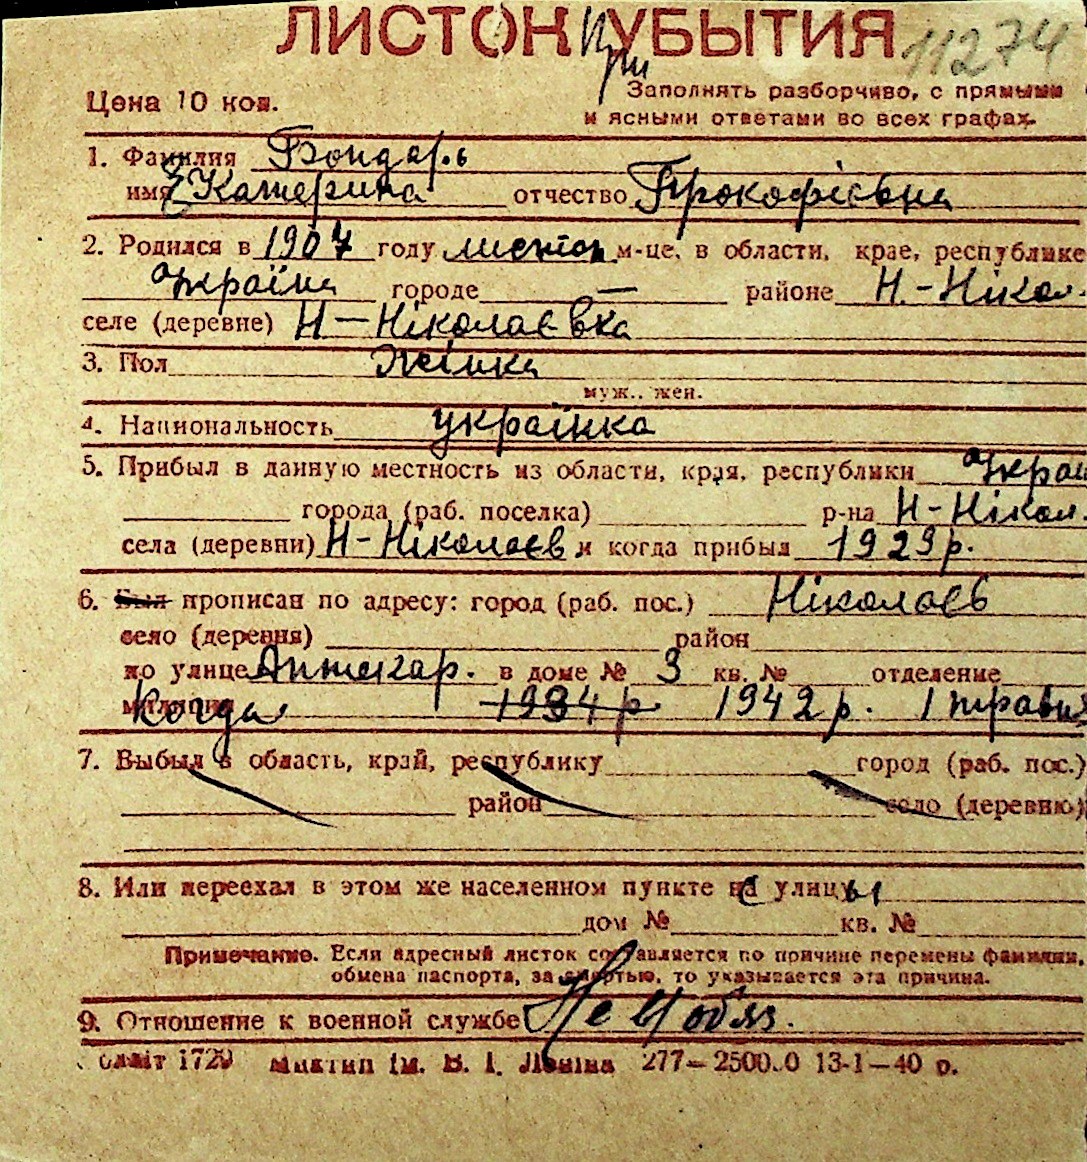 ЛИСТОК При УБЫТИЯ 11274
Цена 10 коп. Заполнять разборчиво, с прямыми
и ясными ответами во всех графах.
1. Фамилия Бондарь
имя Катерина отчество Прокофієвна
2. Родился в 1907 году м-це, в области, крае, республике
Україна городе — районе Н.-Нікол.
селе (деревне) Н-Ніколаєвка
3. Пол Жінка
муж., жен.
4. Национальность українка
5. Прибыл в данную местность из области, края, республики Украї
города (раб. поселка) р-на Н-Нікол.
села (деревни) Н-Ніколаєв и когда прибыл 1929 р.
6. Был прописан по адресу: город (раб. пос.) Ніколаєв
село (деревня) район
по улице Аптекар. в доме № 3 кв. № отделение
милиции Когда 1934 р 1942 р. 1 травн
7. Выбыл в область, край, республику город (раб. пос.)
район село (деревню)
8. Или переехал в этом же населенном пункте с улицы
дом № кв. №
Примечание. Если адресный листок составляется по причине перемены фамилии,
обмена паспорта, за смертью, то указывается эта причина.
9. Отношение к военной службе Не
1729 ім. В. І. Леніна 277— 13-1—40 р.